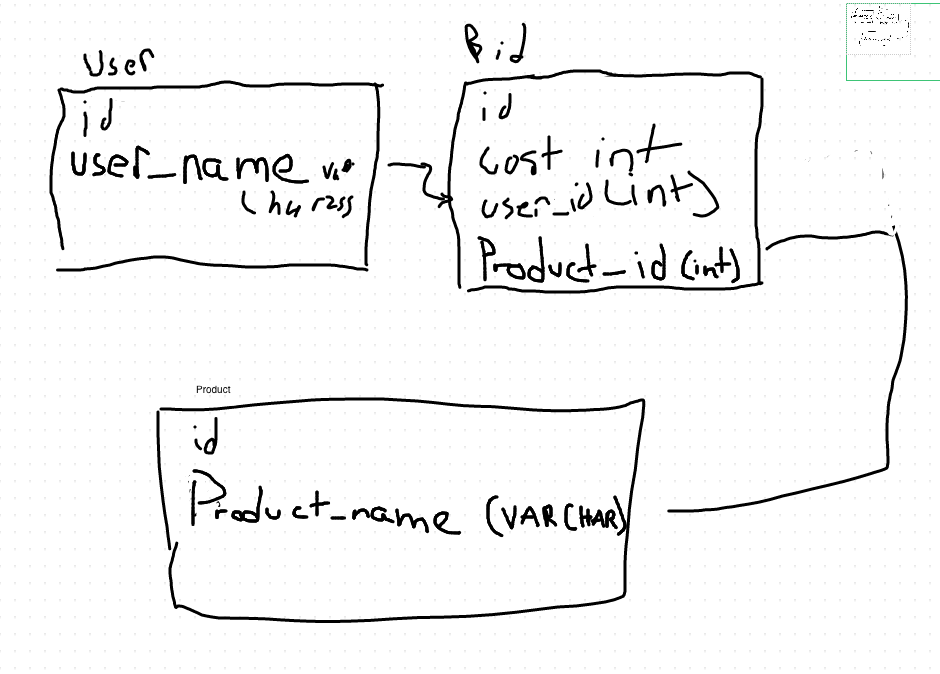 User
id
user_name var
char255
Bid
id
cost int
user_id (int)
Product_id (int)
Product
id
Product_name (VARCHAR)